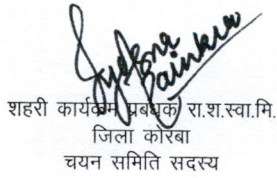 शहरी कार्यक्रम प्रबंधक, रा.श.स्वा.मि.
जिला कोरबा
चयन समिति सदस्य